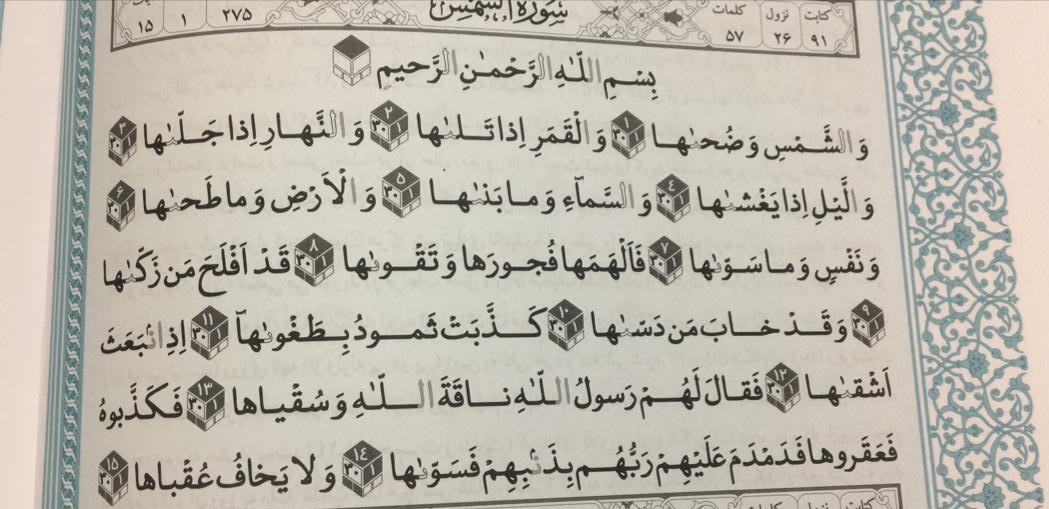 کتابت نزول کلمات سورة الشمس
۹۱ ۲۶ ۵۷ ۲۷۵ ۱ ۱۵
بِسْمِ اللّٰهِ الرَّحْمٰنِ الرَّحیمِ
وَ الشَّمْسِ وَ ضُحىٰها ۱ وَ الْقَمَرِ اِذا تَلىٰها ۲ وَ النَّهارِ اِذا جَلّىٰها ۳
وَ الَّیْلِ اِذا یَغْشىٰها ۴ وَ السَّمآءِ وَ ما بَنىٰها ۵ وَ الْاَرْضِ وَ ما طَحىٰها ۶
وَ نَفْسٍ وَ ما سَوّىٰها ۷ فَاَلْهَمَها فُجورَها وَ تَقْوىٰها ۸ قَدْ اَفْلَحَ مَن زَكّىٰها
۹ وَ قَدْ خابَ مَن دَسّىٰها ۱۰ كَذَّبَتْ ثَمودُ بِطَغْوىٰهآ ۱۱ اِذِ انْۢبَعَثَ
اَشْقىٰها ۱۲ فَقالَ لَهُمْ رَسولُ اللّٰهِ ناقَةَ اللّٰهِ وَ سُقْیاها ۱۳ فَكَذَّبوهُ
فَعَقَروها فَدَمْدَمَ عَلَیْهِمْ رَبُّهُم بِذَنْۢبِهِمْ فَسَوّىٰها ۱۴ وَ لا یَخافُ عُقْباها ۱۵